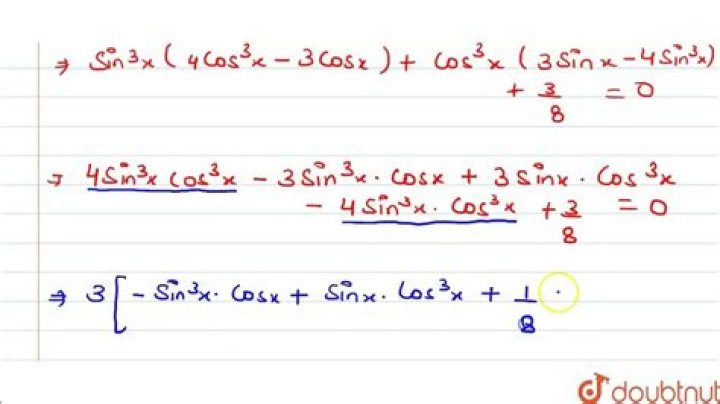 ⇒ Sin³x ( 4Cos³x − 3Cosx ) + Cos³x ( 3Sinx − 4Sin³x)
+ 3/8 = 0
⇒ 4Sin³x Cos³x − 3Sin³x · Cosx + 3Sinx · Cos³x
− 4Sin³x · Cos³x + 3/8 = 0
⇒ 3 [ − Sin³x · Cosx + Sinx · Cos³x + 1/8 ·
doubtnut